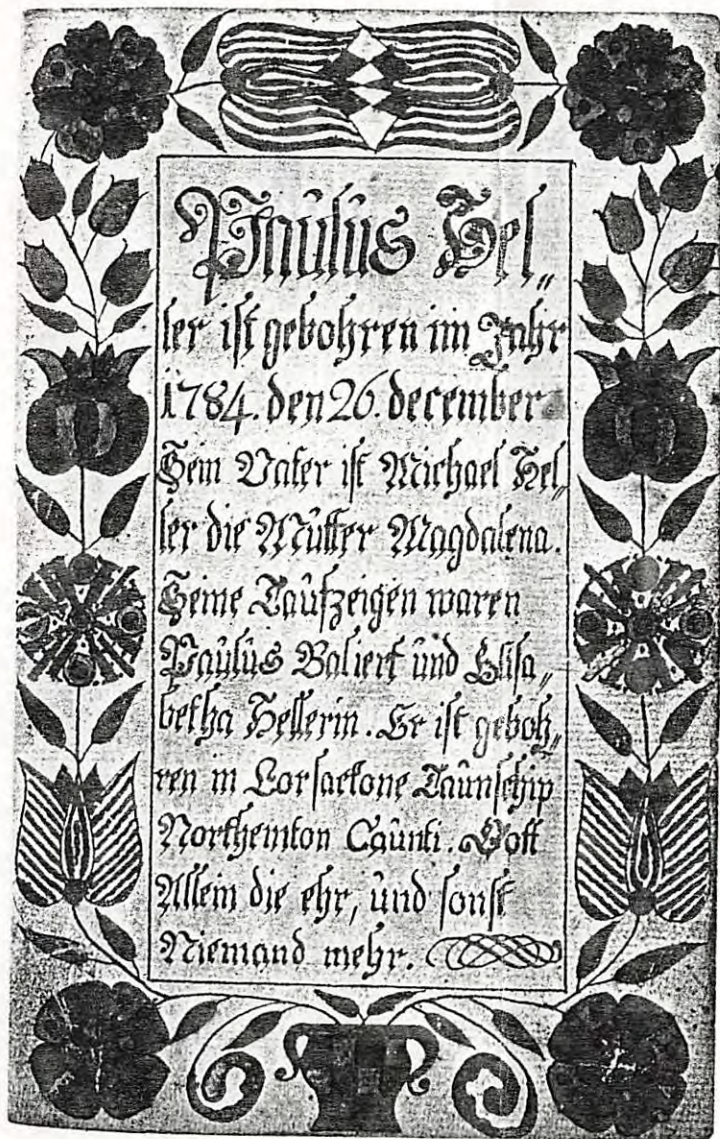 Paulus Hel„
ler ist gebohren im Jahr
1784. den 26. december
Sein Vater ist Michael Hel„
ler die Mutter Magdalena.
Seine Taufzeigen waren
Paulus Baliert und Elisa„
betha Hellerin. Er ist geboh„
ren in Lorsackone Taunschip
Northemton Caunti. Gott
Allein die ehr, und sonst
Niemand mehr.